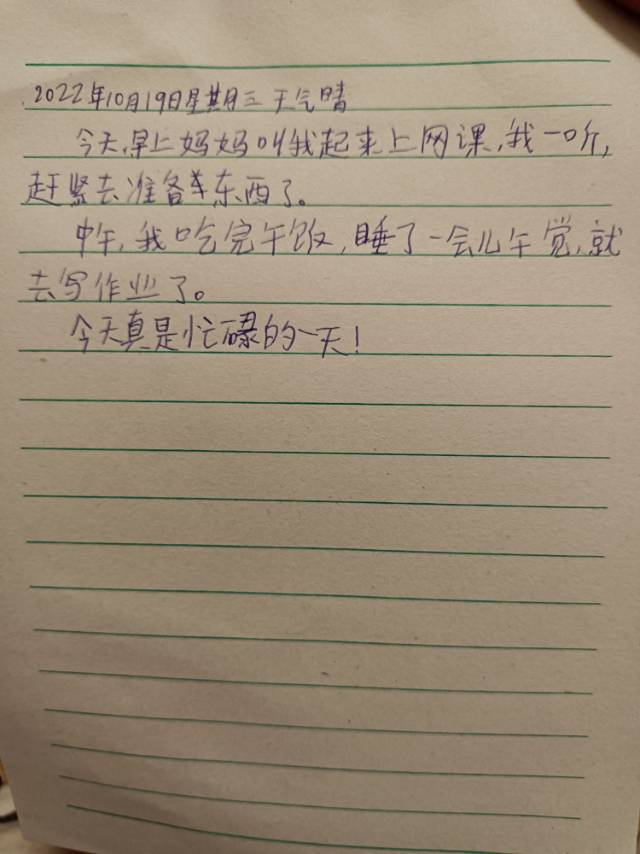 2022年10月19日星期三 天气晴
今天,早上妈妈叫我起来上网课,我一听,
赶紧去准备东西了。
中午,我吃完午饭,睡了一会儿午觉,就
去写作业了。
今天真是忙碌的一天!